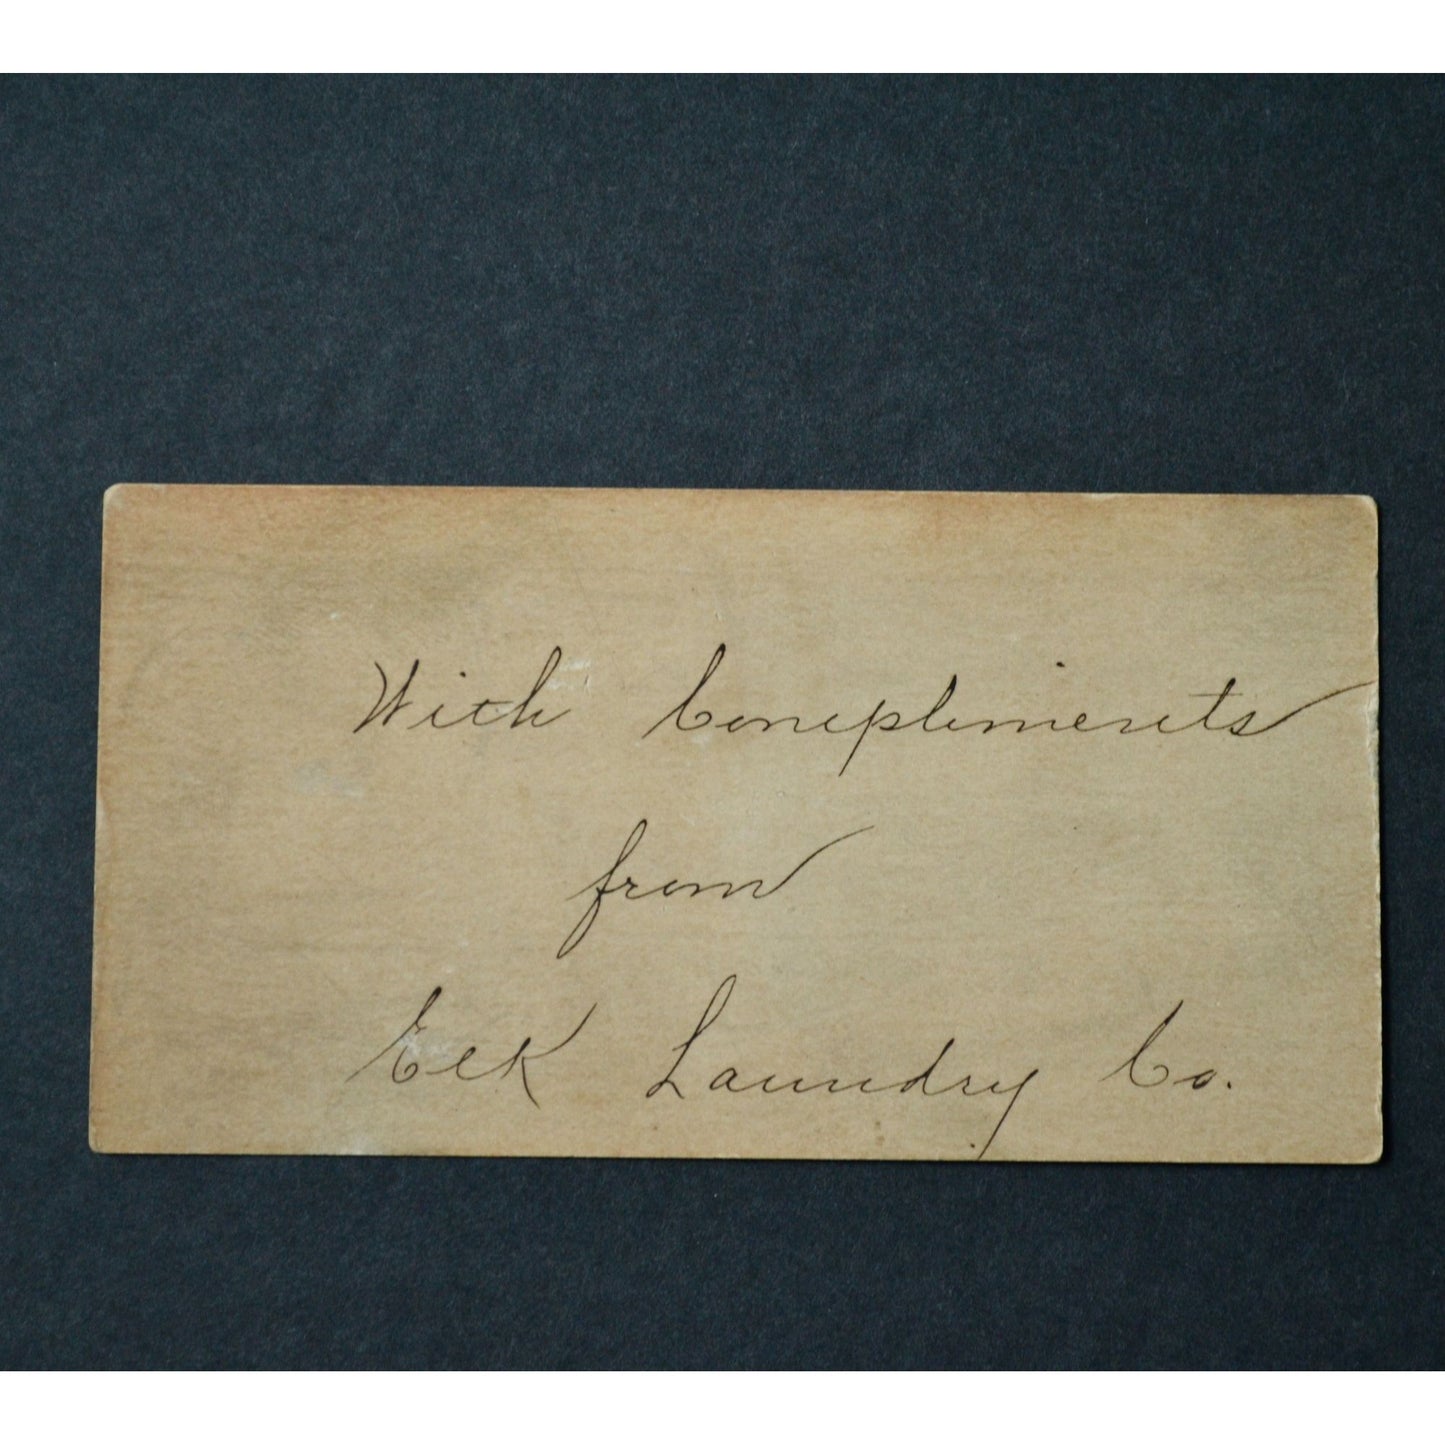 With Compliments
from
Elk Laundry Co.